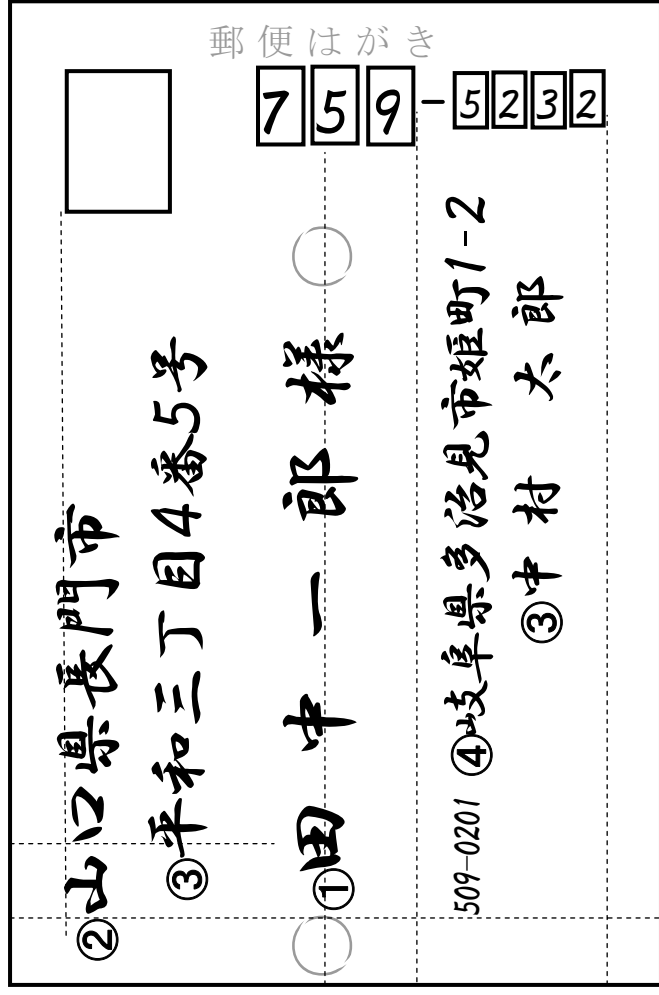 郵便はがき
759-5232
②山口県長門市
③平和三丁目4番5号
①田中一郎様
509-0201 ④岐阜県多治見市姫町1-2
③中村 太郎